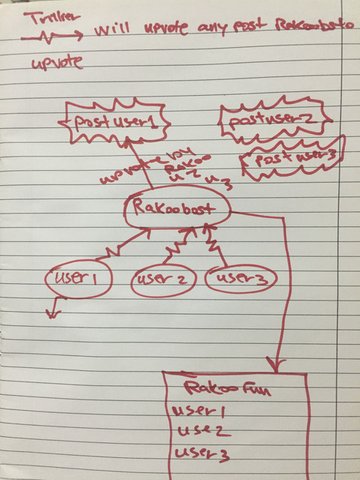 Triker
will upvote any post Rakoobsto
upvote
post user1
postuser2
post user3
upvote by
Rakoo
u2 u3
Rakoobost
user1
user 2
user3
Rakoo Fun
user1
use2
user3